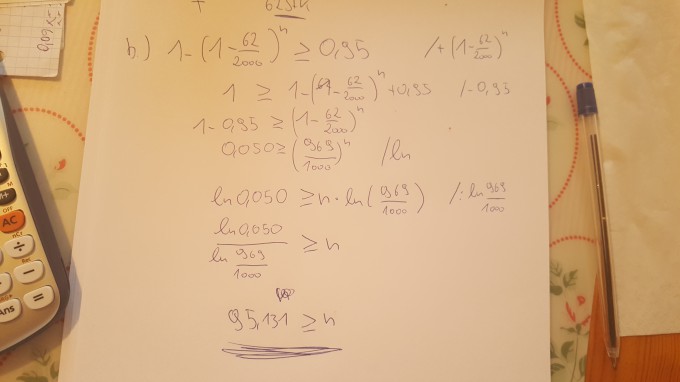 0,09
62Stk
b) 1-(1-62/2000)^n ≥ 0,95 /+(1-62/2000)^n
1 ≥ 1-(1-62/2000)^n +0,95 /-0,95
1-0,95 ≥ (1-62/2000)^n
0,050 ≥ (969/1000)^n /ln
ln 0,050 ≥ n · ln(969/1000) /: ln 969/1000
ln 0,050 / ln 969/1000 ≥ n
95,131 ≥ n
M+
OFF
AC
÷
−
Ans
=